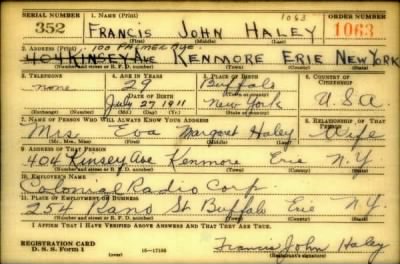 SERIAL NUMBER 1. NAME (Print) 1063 ORDER NUMBER
352 FRANCIS JOHN HALEY 1063
(First) (Middle) (Last)
2. ADDRESS (Print) 100 PALMER AVE.
401 KINSEY AVE KENMORE ERIE NEW YORK
(Number and street or R. F. D. number) (Town) (County) (State)
3. TELEPHONE 4. AGE IN YEARS 5. PLACE OF BIRTH 6. COUNTRY OF CITIZENSHIP
none 29 Buffalo
DATE OF BIRTH (Town or county)
July 27 1911 New York U.S.A
(Exchange) (Number) (Mo.) (Day) (Yr.) (State or country)
7. NAME OF PERSON WHO WILL ALWAYS KNOW YOUR ADDRESS 8. RELATIONSHIP OF THAT PERSON
Mrs Eva Margaret Haley Wife
(Mr., Mrs., Miss) (First) (Middle) (Last)
9. ADDRESS OF THAT PERSON
404 Kinsey Ave Kenmore Erie N.Y
(Number and street or R. F. D. number) (Town) (County) (State)
10. EMPLOYER'S NAME
Colonial Radio Corp.
11. PLACE OF EMPLOYMENT OR BUSINESS
254 Rano St Buffalo Erie N.Y.
(Number and street or R. F. D. number) (Town) (County) (State)
I AFFIRM THAT I HAVE VERIFIED ABOVE ANSWERS AND THAT THEY ARE TRUE.
REGISTRATION CARD
D. S. S. Form 1 (over) 16-17105 Francis John Haley
(Registrant's signature)